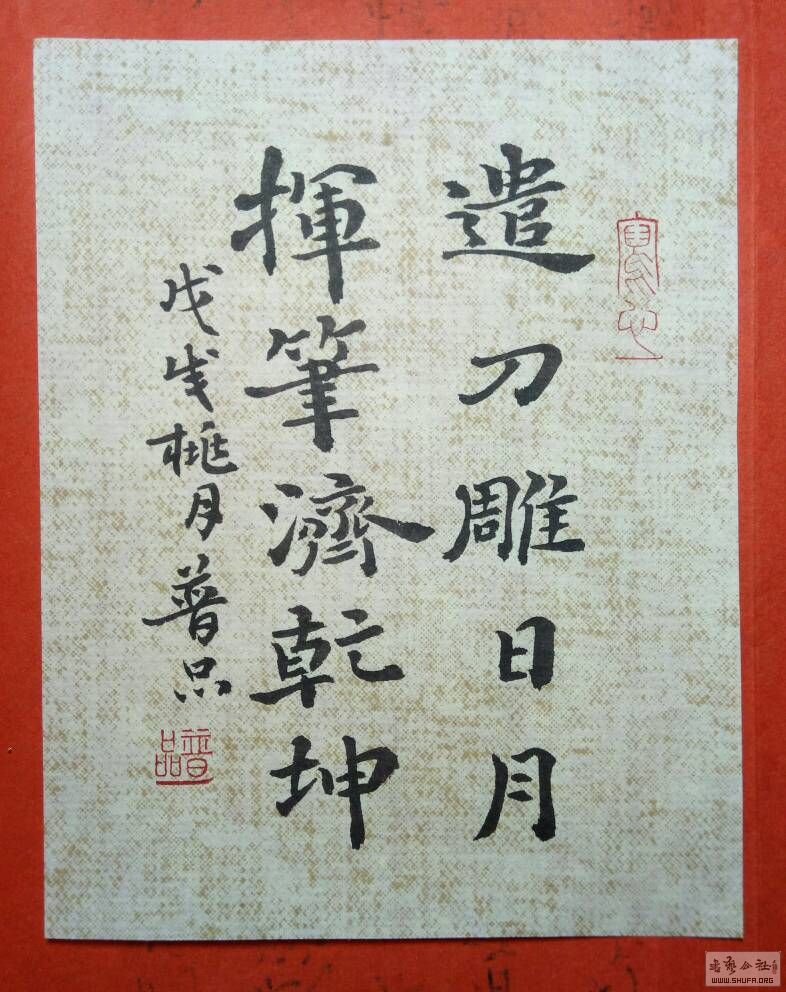 遣刀雕日月
揮筆濟乾坤
戊戌桃月普品
普品
WWW.SHUFA.ORG